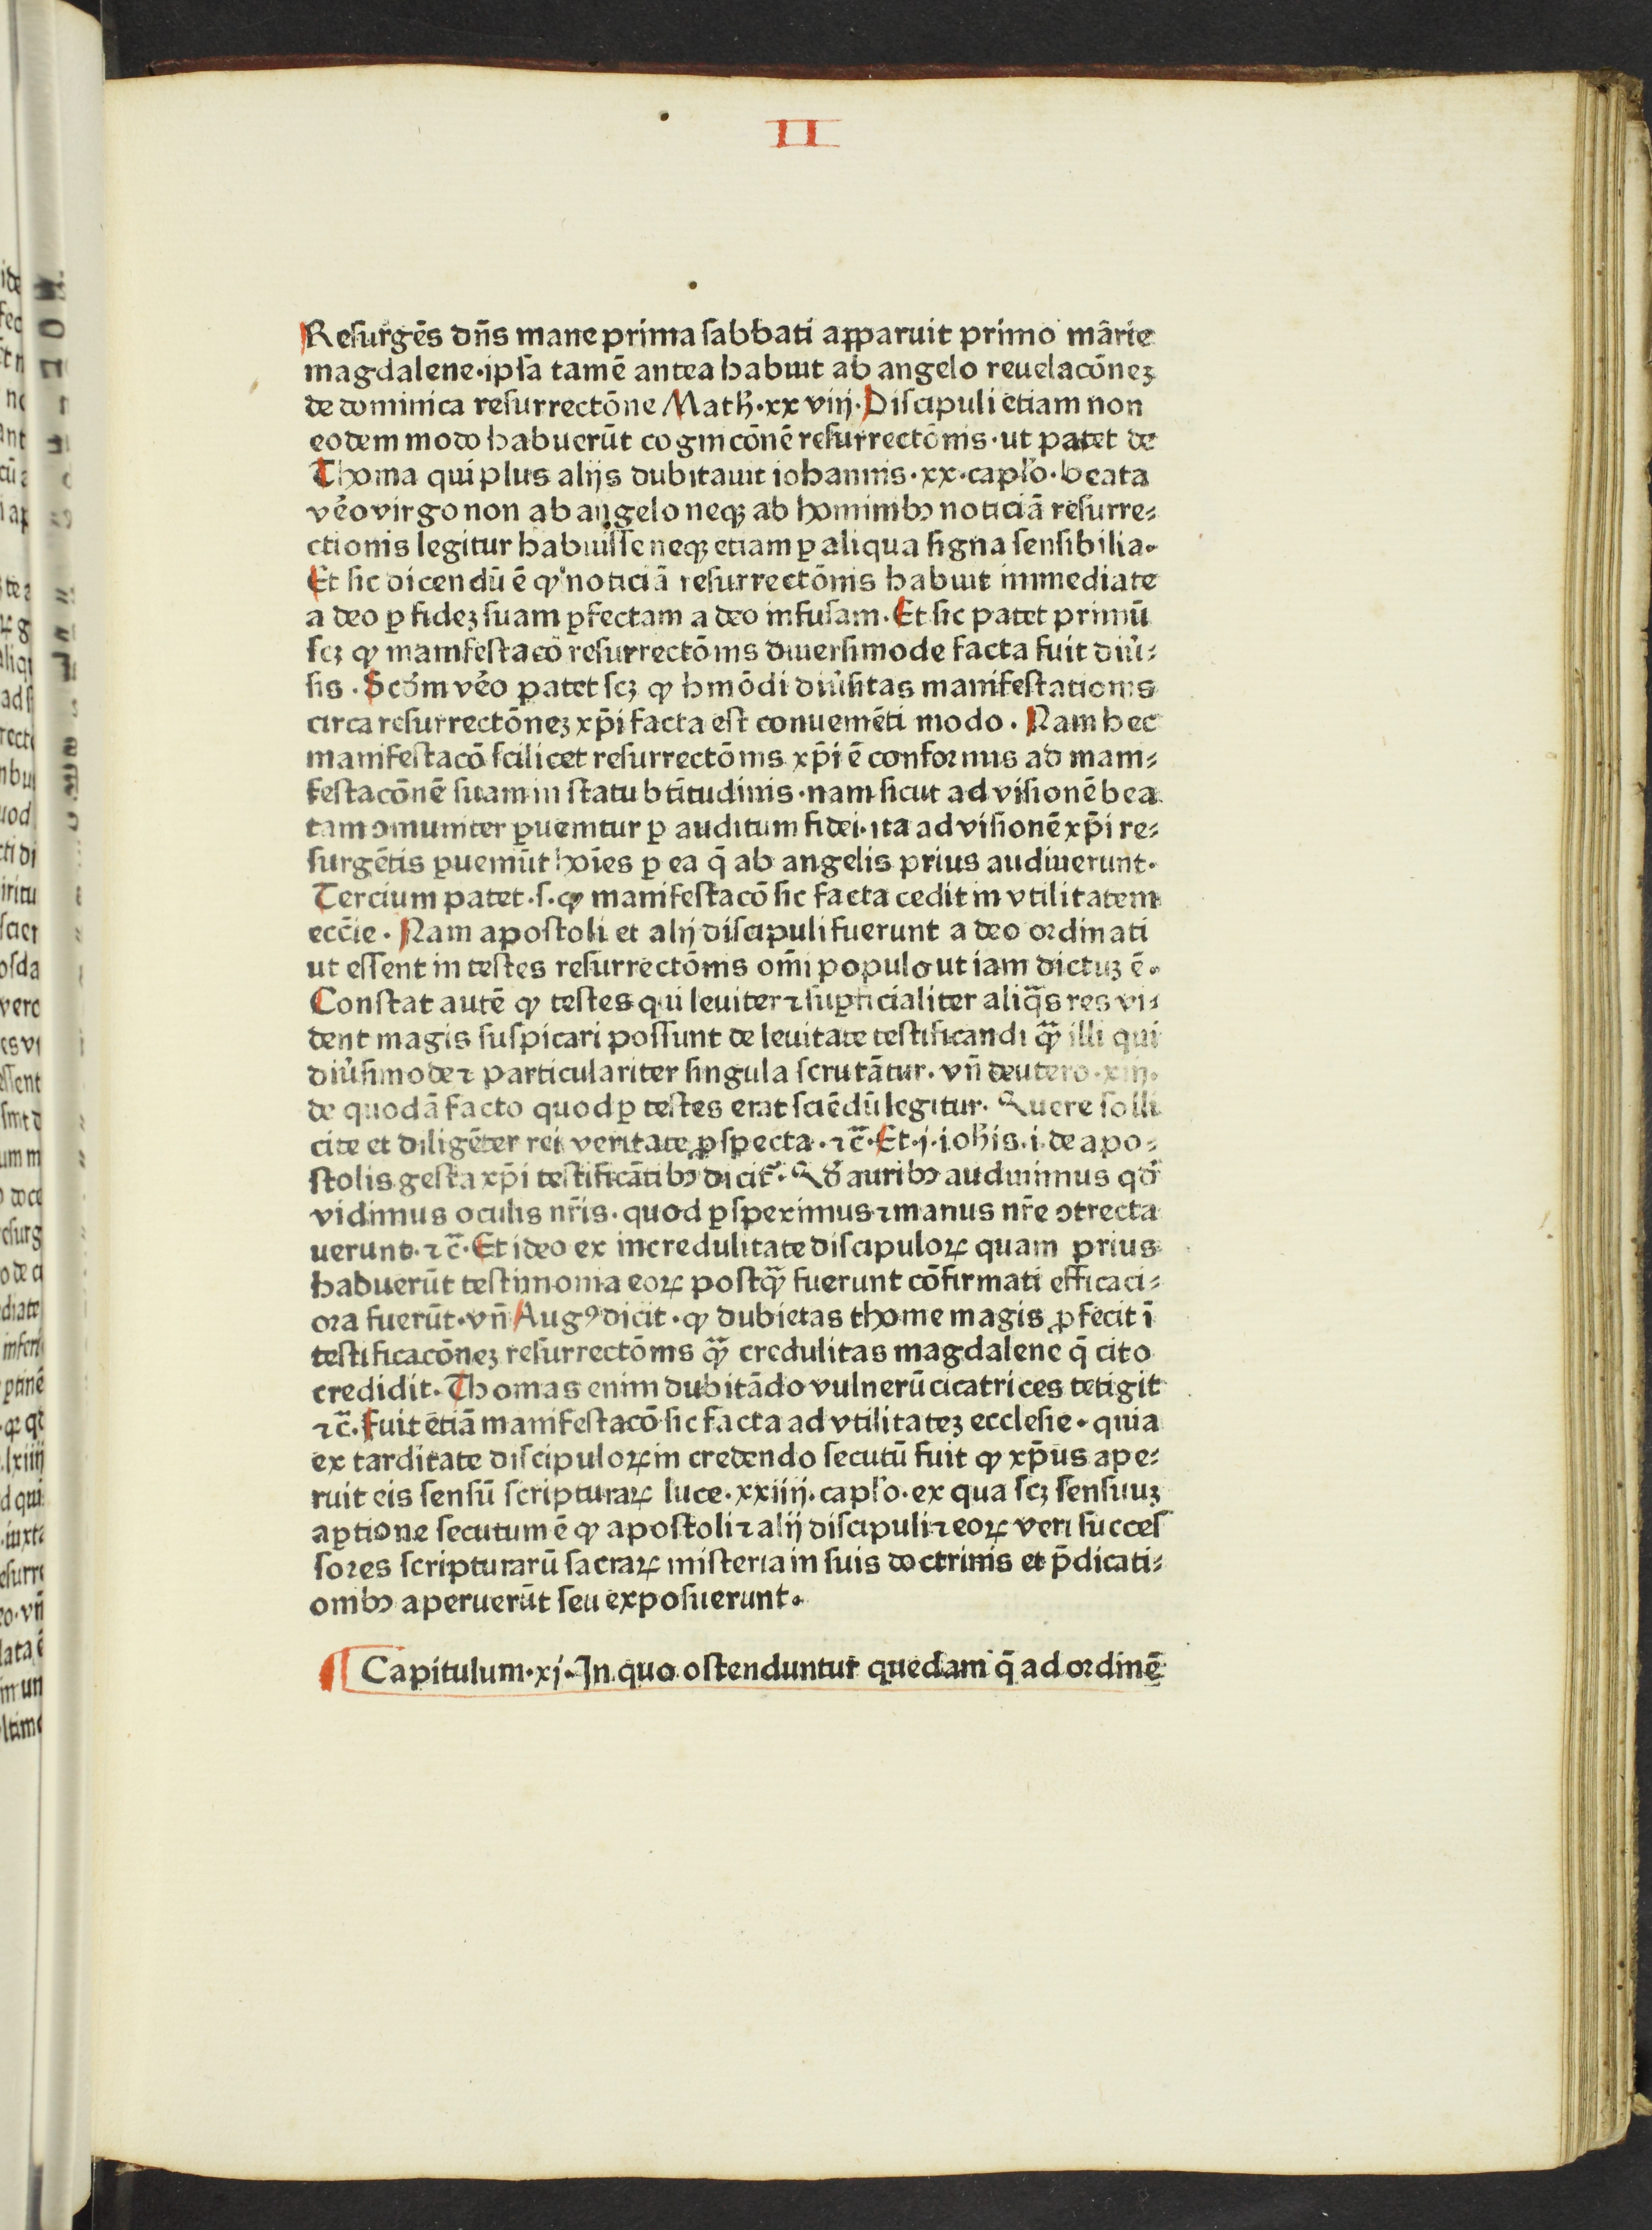 II
Resurgēs dn̄s mane prima sabbati apparuit primo mārie
magdalene·ipsa tamē antea habuit ab angelo reuelacōneꝫ
de dominica resurrectōne Math̄·xxviij·Discipuli etiam non
eodem modo habuerūt cognicōnē resurrectōnis·ut patet de
Thoma qui plus alijs dubitauit iohannis·xx·capło·beata
v̄eo virgo non ab angelo neqꝫ ab hominibꝰ noticiā resurre⸗
ctionis legitur habuisse neqꝫ etiam ꝑ aliqua signa sensibilia·
Et sic dicendū ē ꝙ noticiā resurrectōnis habuit immediate
a deo ꝑ fideꝫ suam ꝑfectam a deo infusam·Et sic patet primū
scꝫ ꝙ manifestacō resurrectōnis diuersimode facta fuit diu̾⸗
sis·Scōm v̄eo patet scꝫ ꝙ hmōdi diu̾sitas manifestationis
circa resurrectōneꝫ xp̄i facta est conueniēti modo·Nam hec
manifestacō scilicet resurrectōnis xp̄i ē conformis ad mani⸗
festacōnē suam in statu btītudinis·nam sicut ad visionē bea
tam ꝯmuniter ꝑuenitur ꝑ auditum fidei·ita ad visionē xp̄i re⸗
surgētis ꝑueniūt hoīes ꝑ ea q̄ ab angelis prius audiuerunt·
Tercium patet·s·ꝙ manifestacō sic facta cedit in vtilitatem
eccīe·Nam apostoli et alij discipuli fuerunt a deo ordinati
ut essent in testes resurrectōnis om̄i populo ut iam dictuꝫ ē·
Constat autē ꝙ testes qui leuiter ⁊ suꝑficialiter aliq̄s res vi⸗
dent magis suspicari possunt de leuitate testificandi qꝫ̄ illi qui
diu̾simode ⁊ particulariter singula scrutātur·vn̄ deutero·xiij·
de quodā facto quod ꝑ testes erat sciēdū legitur·Quere solli
cite et diligēter rei veritate ꝓspecta·⁊c̄·Et·j·ioh̄is·i·de apo⸗
stolis gesta xp̄i testificātibꝰ dicit᷑·Qd̄ auribꝰ audiuimus qd̄
vidimus oculis nr̄is·quod ꝑspeximus ⁊ manus nr̄e ꝯtrecta
uerunt·⁊c̄·Et ideo ex incredulitate discipuloꝝ quam prius
habuerūt testimonia eoꝝ postqꝫ̄ fuerunt cōfirmati efficaci⸗
ora fuerūt·vn̄ Augꝰ dicit·ꝙ dubietas thome magis ꝓfecit ī
testificacōneꝫ resurrectōnis qꝫ̄ credulitas magdalene q̄ cito
credidit·Thomas enim dubitādo vulnerū cicatrices tetigit
⁊c̄·Fuit ētiā manifestacō sic facta ad vtilitateꝫ ecclesie·quia
ex tarditate discipuloꝝ in credendo secutū fuit ꝙ xp̄us ape⸗
ruit eis sensū scripturaꝝ luce·xxiiij·capło·ex qua scꝫ sensuuꝫ
aꝑtione secutum ē ꝙ apostoli ⁊ alij discipuli ⁊ eoꝝ veri succes
sores scripturarū sacraꝝ misteria in suis doctrinis et p̄dicati⸗
onibꝰ aperuerūt seu exposuerunt·
Capitulum·xj·In quo ostenduntur quedam q̄ ad ordinē